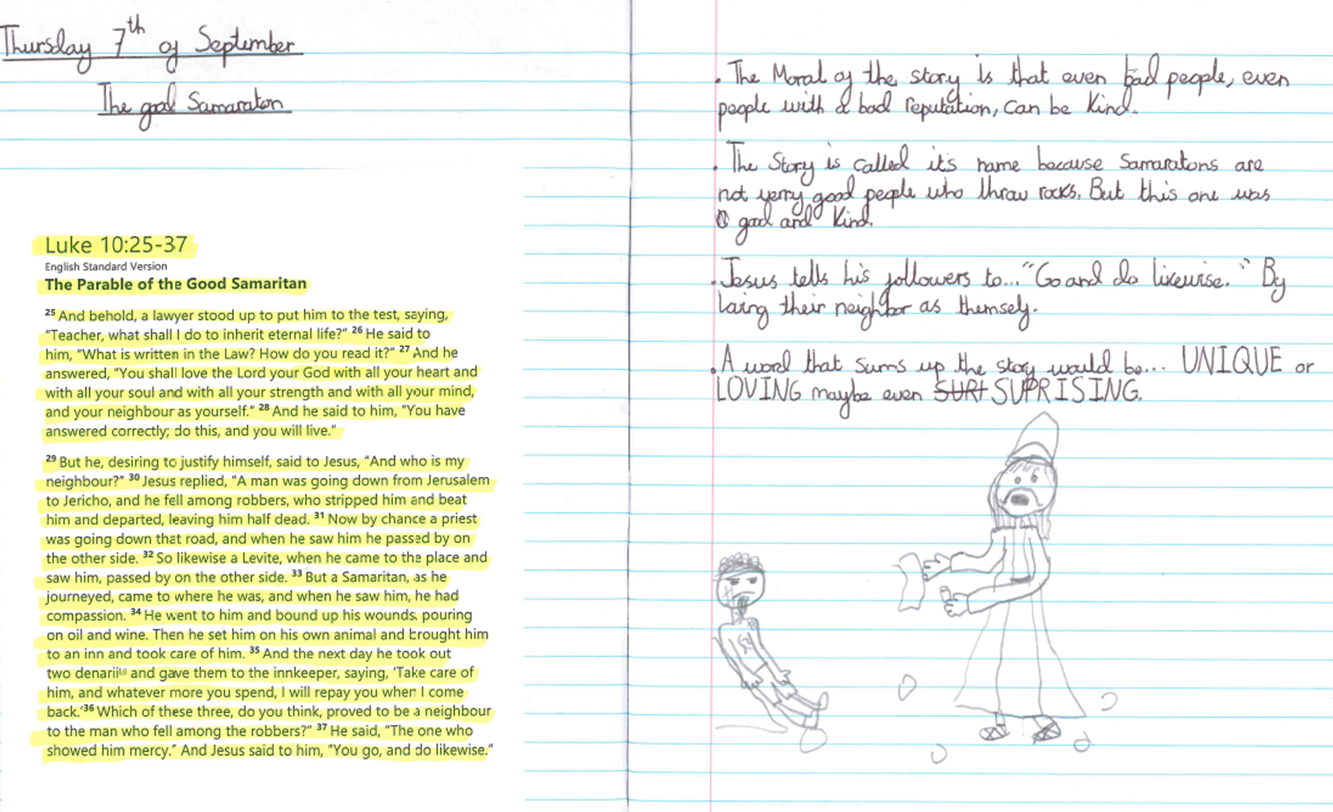 Thursday 7th of September
The good Samaraton
Luke 10:25-37
English Standard Version
The Parable of the Good Samaritan
25 And behold, a lawyer stood up to put him to the test, saying,
"Teacher, what shall I do to inherit eternal life?" 26 He said to
him, "What is written in the Law? How do you read it?" 27 And he
answered, "You shall love the Lord your God with all your heart and
with all your soul and with all your strength and with all your mind,
and your neighbour as yourself." 28 And he said to him, "You have
answered correctly; do this, and you will live."
29 But he, desiring to justify himself, said to Jesus, "And who is my
neighbour?" 30 Jesus replied, "A man was going down from Jerusalem
to Jericho, and he fell among robbers, who stripped him and beat
him and departed, leaving him half dead. 31 Now by chance a priest
was going down that road, and when he saw him he passed by on
the other side. 32 So likewise a Levite, when he came to the place and
saw him, passed by on the other side. 33 But a Samaritan, as he
journeyed, came to where he was, and when he saw him, he had
compassion. 34 He went to him and bound up his wounds, pouring
on oil and wine. Then he set him on his own animal and brought him
to an inn and took care of him. 35 And the next day he took out
two denarii and gave them to the innkeeper, saying, 'Take care of
him, and whatever more you spend, I will repay you when I come
back.'36 Which of these three, do you think, proved to be a neighbour
to the man who fell among the robbers?" 37 He said, "The one who
showed him mercy." And Jesus said to him, "You go, and do likewise."
. The Moral of the story is that even bad people, even
people with a bad reputation, can be kind.
. The Story is called it's name because Samaratons are
not verry good people who thraw rocks. But this one was
good and kind.
. Jesus tells his followers to... "Go and do likewise." By
their neighbor as themsely.
. A word that sums up the story would be... UNIQUE or
LOVING maybe even SURI SUPRISING.